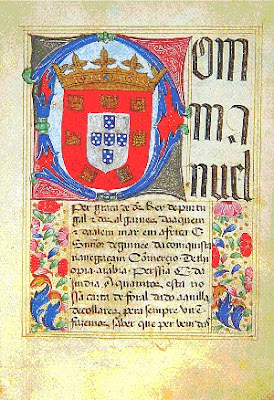 Dom
mā
nuel
Per graça de ds Rey de purtu
gal & dos algarues, daaquem
& daalem mar em africa
Sñor de guinee & da comquista
nauegaçam Comercio de thi
opia arabia Perssia & da
Jndia A Quamtos esta no
ssa carta de foral dado aa villa
de collares, pera sempre virē
fazemos saber que per bem das